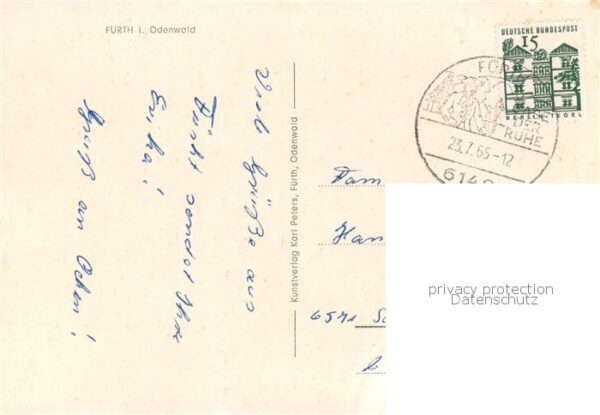 FÜRTH i. Odenwald
Viele Grüße aus
Fürth sendet Ihre
Erika!
Gruß an Ochen!
Kunstverlag Karl Peters, Fürth, Odenwald
DEUTSCHE BUNDESPOST
15
BERLIN-TEGEL
DER
RUHE
23.7.65-12
614
Fam
6571
privacy protection
Datenschutz